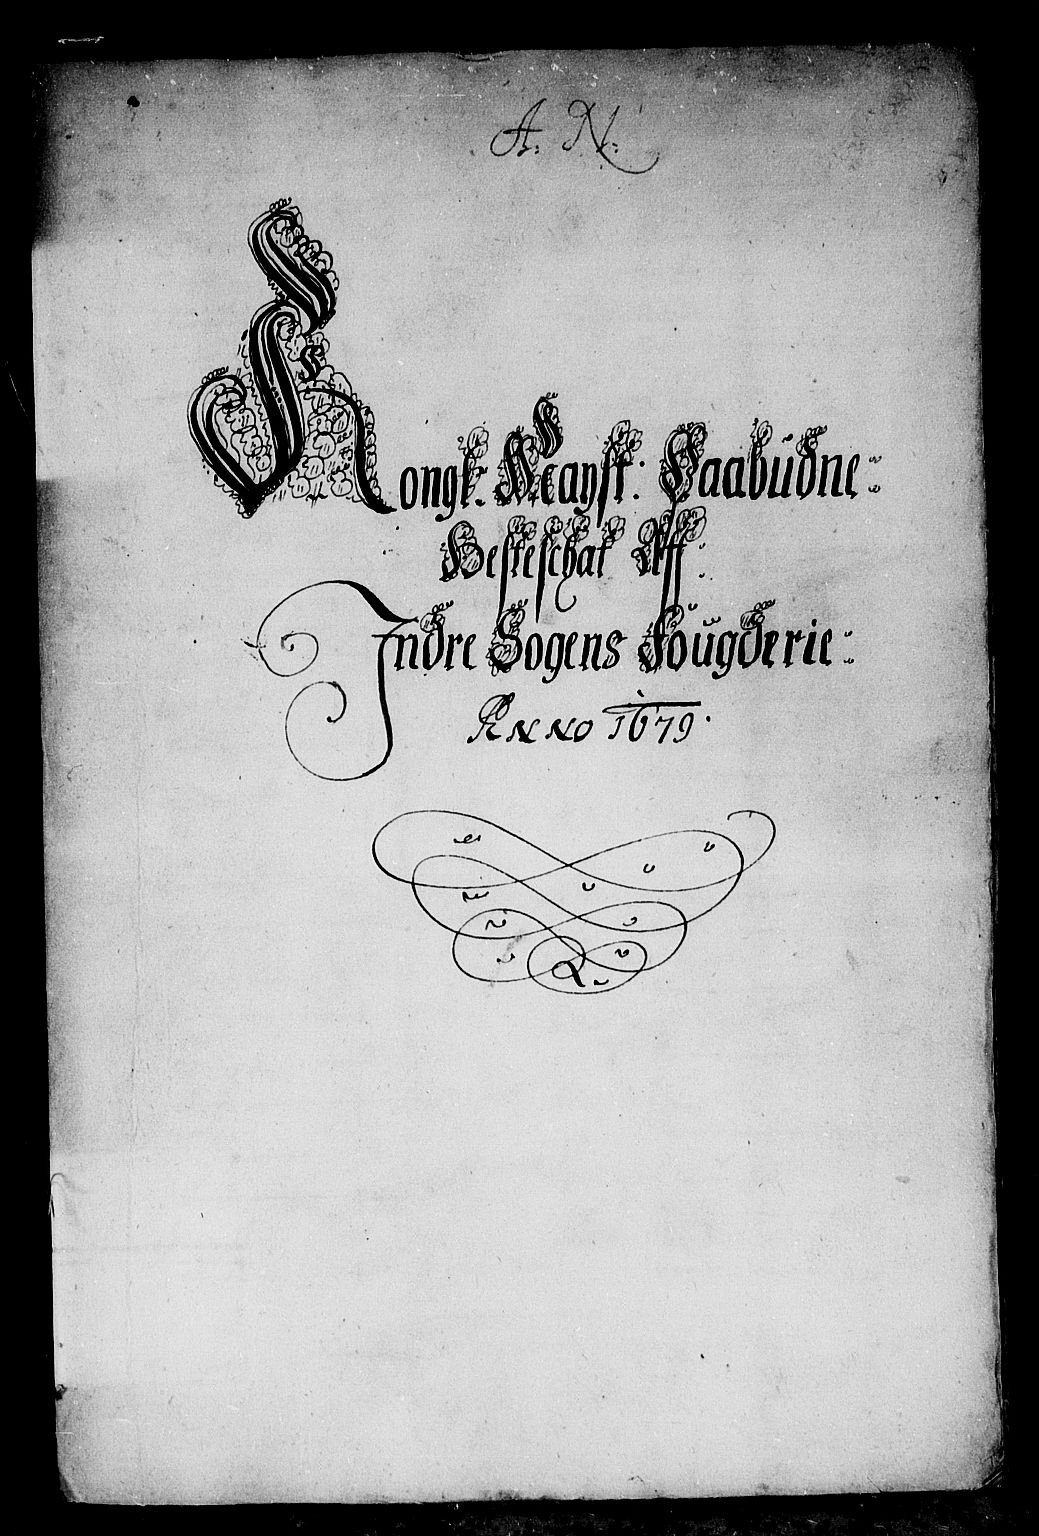 A: N:
Kongl: Mayst: Paabüdne:
Hesteschat Aff:
Indre Sogens Foügderie:
ANNO 1679.